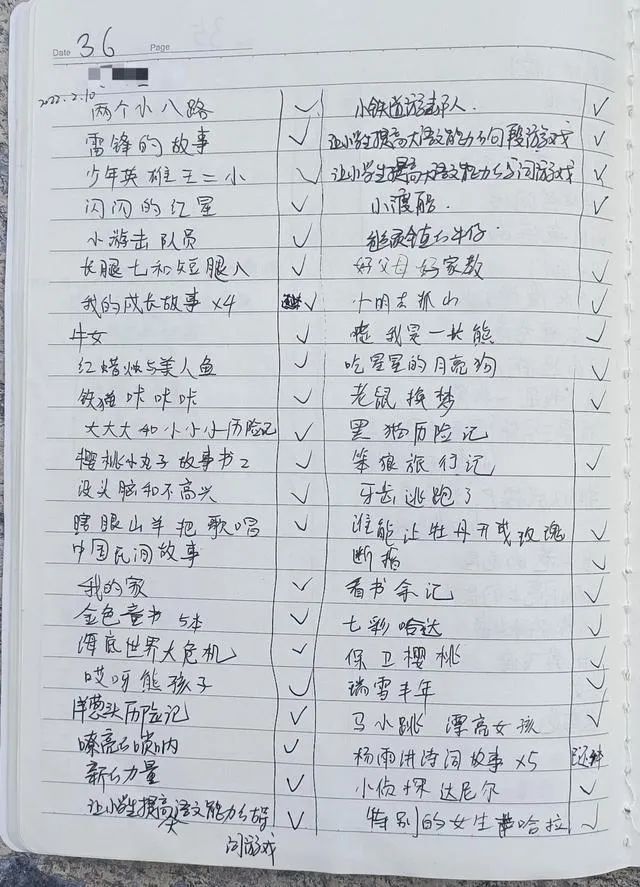 Date 36 Page
2022.2.10
两个小八路 ✓
雷锋的故事 ✓
少年英雄王二小 ✓
闪闪的红星 ✓
小游击队员 ✓
长腿七和短腿八 ✓
我的成长故事 x4 ✓
牛女 ✓
红蜡烛与美人鱼 ✓
铁猫咔咔咔 ✓
大大大和小小小历险记 ✓
樱桃小丸子故事书2 ✓
没头脑和不高兴 ✓
瞎眼山羊把歌唱 ✓
中国民间故事
我的家 ✓
金色童书 5本 ✓
海底世界大危机 ✓
哎呀熊孩子 ✓
洋葱头历险记 ✓
嘹亮的唢呐 ✓
新的力量 ✓
让小学生提高大语文能力的
词游戏 ✓
小铁道游击队人. ✓
让小学生提高大语文能力的句段游戏 ✓
让小学生提高大语文能力的字词游戏 ✓
小渡船. ✓
镇的牛仔.
好父母好家教 ✓
小明去孤山 ✓
嗨 我是一长熊 ✓
吃星星的月亮狗 ✓
老鼠换梦 ✓
黑猫历险记 ✓
笨狼旅行记 ✓
牙齿逃跑了
谁能让牡丹开成玫瑰 ✓
断箭 ✓
看书余记 ✓
七彩哈达 ✓
保卫樱桃 ✓
瑞雪丰年 ✓
马小跳 漂亮女孩 ✓
杨雨讲诗词故事 x5
小侦探达尼尔 ✓
特别的女生 哈拉 ✓